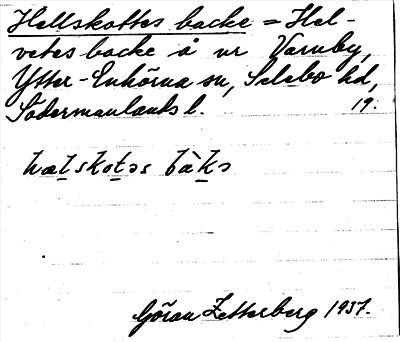 Hellskottes backe = Hel-
vetes backe å nr Varnby,
Ytter-Enhörna sn, Selebo hd,
Södermanlands l. 19:
hælskotəs bàkə
Göran Zetterberg 1937.